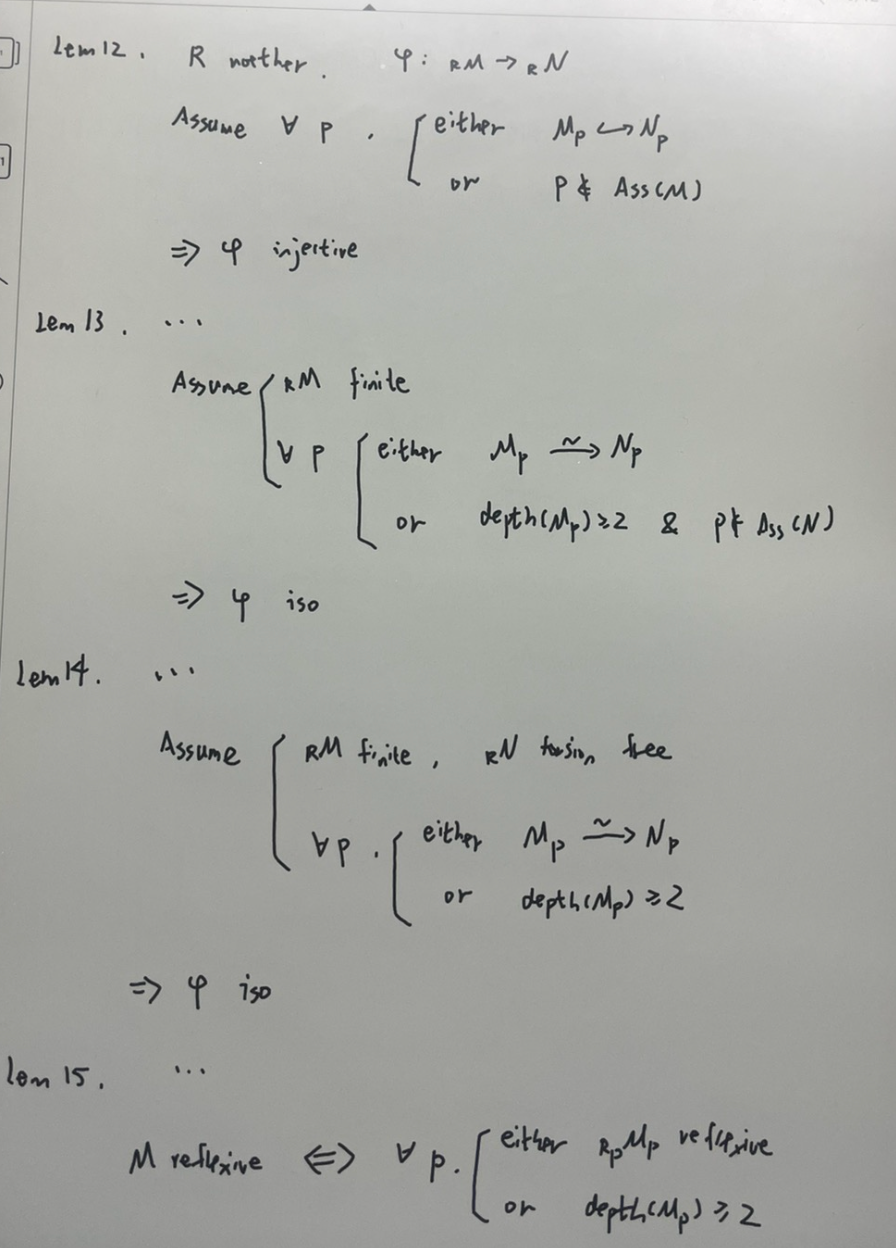 Lem 12. R noether. φ: RM → RN
Assume ∀ p . { either Mp ↪ Np
or p ∉ Ass(M)
⇒ φ injective
Lem 13. ...
Assume { RM finite
∀ p { either Mp ⥲ Np
or depth(Mp) ≥ 2 & p ∉ Ass(N)
⇒ φ iso
Lem 14. ...
Assume { RM finite, RN torsion free
∀ p . { either Mp ⥲ Np
or depth(Mp) ≥ 2
⇒ φ iso
Lem 15. ...
M reflexive ⇔ ∀ p. { either RpMp reflexive
or depth(Mp) ≥ 2